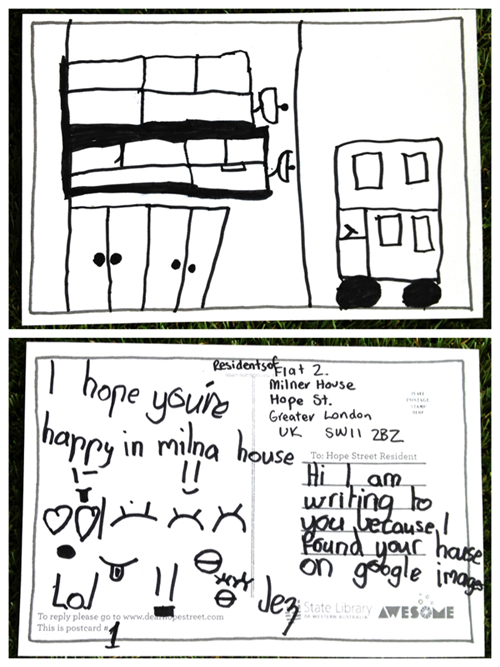 I hope you're
happy in milna house
Lol
Jez
Residents of Flat 2.
Milner House
Hope St.
Greater London
UK SW11 2BZ
PLACE
POSTAGE
STAMP
HERE
To: Hope Street Resident
Hi I am
writing to
you because I
found your house
on google images
To reply please go to www.dearhopestreet.com
This is postcard # 1
State Library
OF WESTERN AUSTRALIA
AWESOME